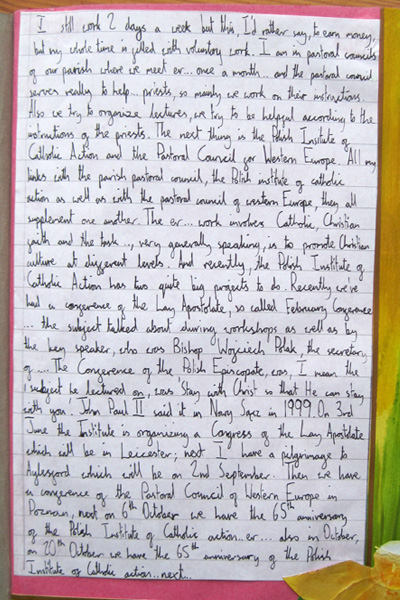 I still work 2 days a week but this, I'd rather say, to earn money,
but my whole time is filled with voluntary work. I am in pastoral councils
of our parish where we meet er... once a month... and the pastoral council
serves really to help... priests, so mainly we work on their instructions.
Also we try to organize lectures, we try to be helpful according to the
instructions of the priests. The next thing is the Polish Institute of
Catholic Action and the Pastoral Council for Western Europe. All my
links with the parish pastoral council, the Polish institute of catholic
action as well as with the pastoral council of western Europe they all
supplement one another. The er... work involves Catholic, Christian
faith and the task.., very generally speaking, is to promote Christian
culture at different levels. And recently, the Polish Institute of
Catholic Action has two quite big projects to do. Recently we've
had a conference of the Lay Apostolate, so called February Conference
... the subject talked about during workshops as well as by
the key speaker, who was Bishop Wojciech Polak, the secretary
of .... The Conference of the Polish Episcopate, was, I mean the
subject he lectured on, was 'Stay with Christ so that He can stay
with you'. John Paul II said it in Nowy Sącz in 1999. On 3rd
June the Institute is organizing a Congress of the Lay Apostolate
which will be in Leicester; next I have a pilgrimage to
Aylesford which will be on 2nd September. Then we have
a conference of the Pastoral Council of Western Europe in
Poznań, next on 6th October we have the 65th anniversary
of the Polish Institute of Catholic action...er... also in October,
on 20th October we have the 65th anniversary of the Polish
Institute of Catholic action...next...